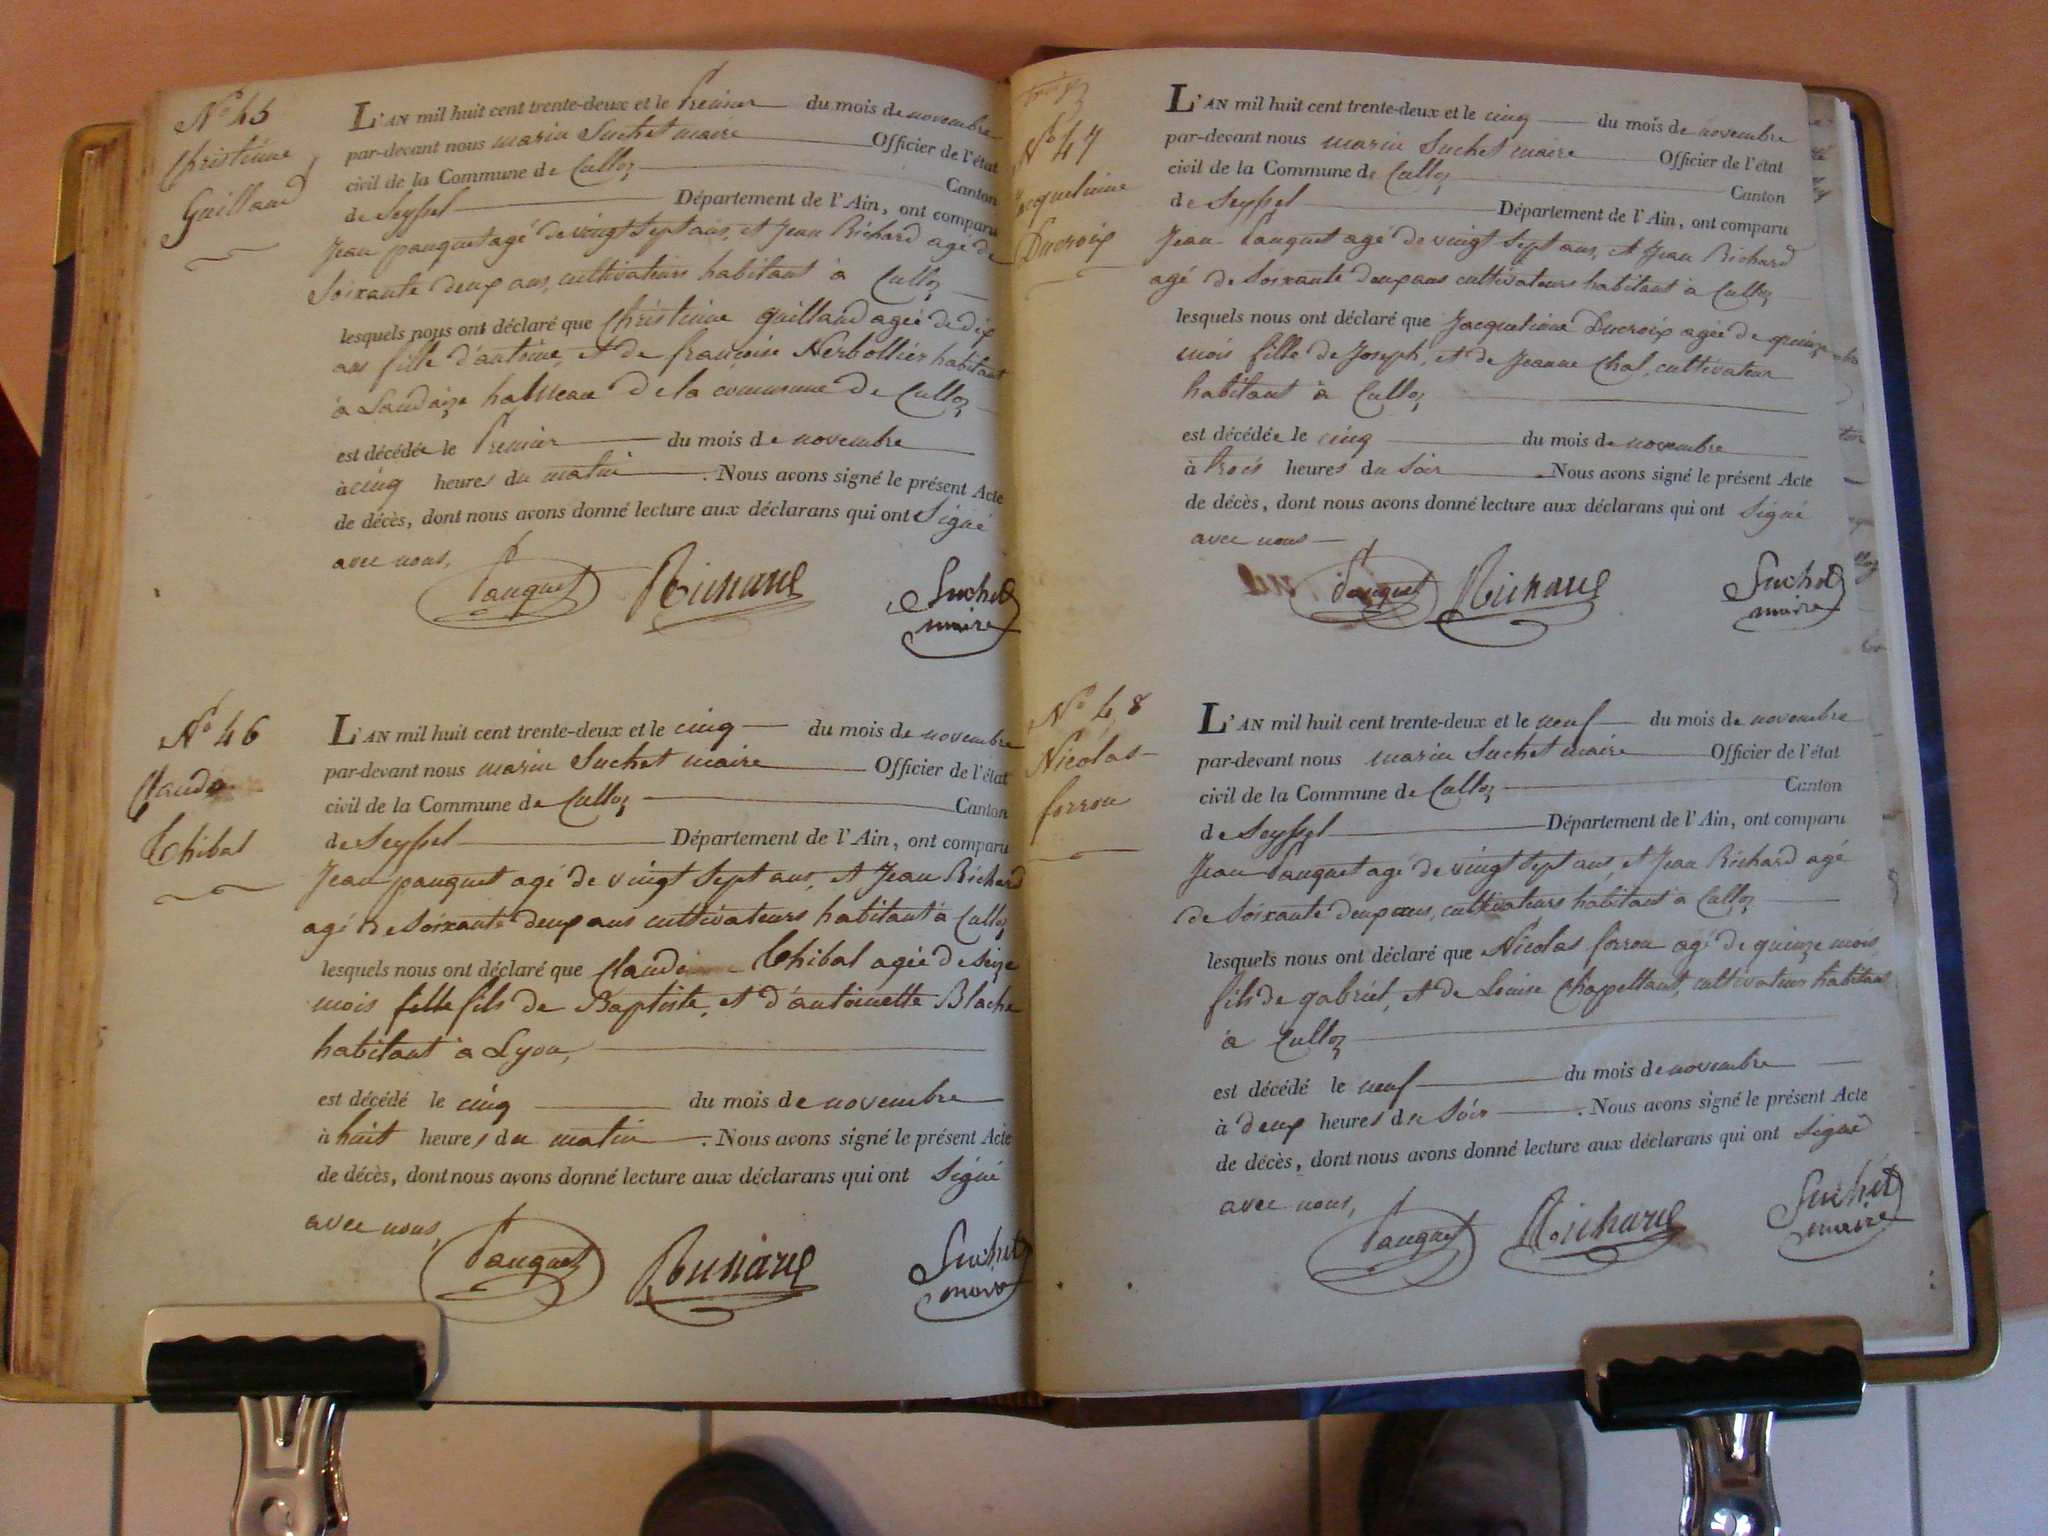 N.º 45
Christinne
Guillaud
L'AN mil huit cent trente-deux et le Premier du mois de novembre
par-devant nous marin Suchet maire Officier de l'état
civil de la Commune de Culloz Canton
de Seyssel Département de l'Ain, ont comparu
Jean pauquet agé de vingt Sept ans, et Jean Richard agé de
Soixante deux ans, cultivateurs habitant à Culloz
lesquels nous ont déclaré que Christinne Guillaud agée de dix
ans fille d'antoine, et de francoise Herbollier habitant
à Landaize hameau de la commune de Culloz
est décédée le Premier du mois de novembre
à cinq heures du matin . Nous avons signé le présent Acte
de décès, dont nous avons donné lecture aux déclarans qui ont Signé
avec nous,
Pauquet Richard Suchet
maire
N.º 46
Claude
Thibal
L'AN mil huit cent trente-deux et le cinq du mois de novembre
par-devant nous marin Suchet maire Officier de l'état
civil de la Commune de Culloz Canton
de Seyssel Département de l'Ain, ont comparu
Jean pauquet agé de vingt Sept ans, et Jean Richard
agé de Soixante deux ans cultivateurs habitant à Culloz
lesquels nous ont déclaré que Claude Thibal agée de Seize
mois fille fils de Baptiste, et d'antoinette Blache
habitant à Lyon,
est décédé le cinq du mois de novembre
à huit heures du matin . Nous avons signé le présent Acte
de décès, dont nous avons donné lecture aux déclarans qui ont Signé
avec nous,
Pauquet Richard Suchet
maire
N.º 47
Jacquelinne
Ducroix
L'AN mil huit cent trente-deux et le cinq du mois de novembre
par-devant nous marin Suchet maire Officier de l'état
civil de la Commune de Culloz Canton
de Seyssel Département de l'Ain, ont comparu
Jean Pauquet agé de vingt Sept ans, et Jean Richard
agé de Soixante deux ans cultivateurs habitant à Culloz
lesquels nous ont déclaré que Jacquelinne Ducroix agée de quinze
mois fille de Joseph, et de Jeanne Chal, cultivateur
habitant à Culloz
est décédée le cinq du mois de novembre
à trois heures du Soir . Nous avons signé le présent Acte
de décès, dont nous avons donné lecture aux déclarans qui ont Signé
avec nous
Pauquet Richard Suchet
maire
N.º 48
Nicolas
forron
L'AN mil huit cent trente-deux et le neuf du mois de novembre
par-devant nous marin Suchet maire Officier de l'état
civil de la Commune de Culloz Canton
de Seyssel Département de l'Ain, ont comparu
Jean Pauquet agé de vingt Sept ans, et Jean Richard agé
de Soixante deux ans, cultivateurs habitant à Culloz
lesquels nous ont déclaré que Nicolas forron agé de quinze mois
fils de gabriel, et de Louise Chapellant, cultivateurs habitant
à Culloz
est décédé le neuf du mois de novembre
à deux heures du Soir . Nous avons signé le présent Acte
de décès, dont nous avons donné lecture aux déclarans qui ont Signé
avec nous,
Pauquet Richard Suchet
maire